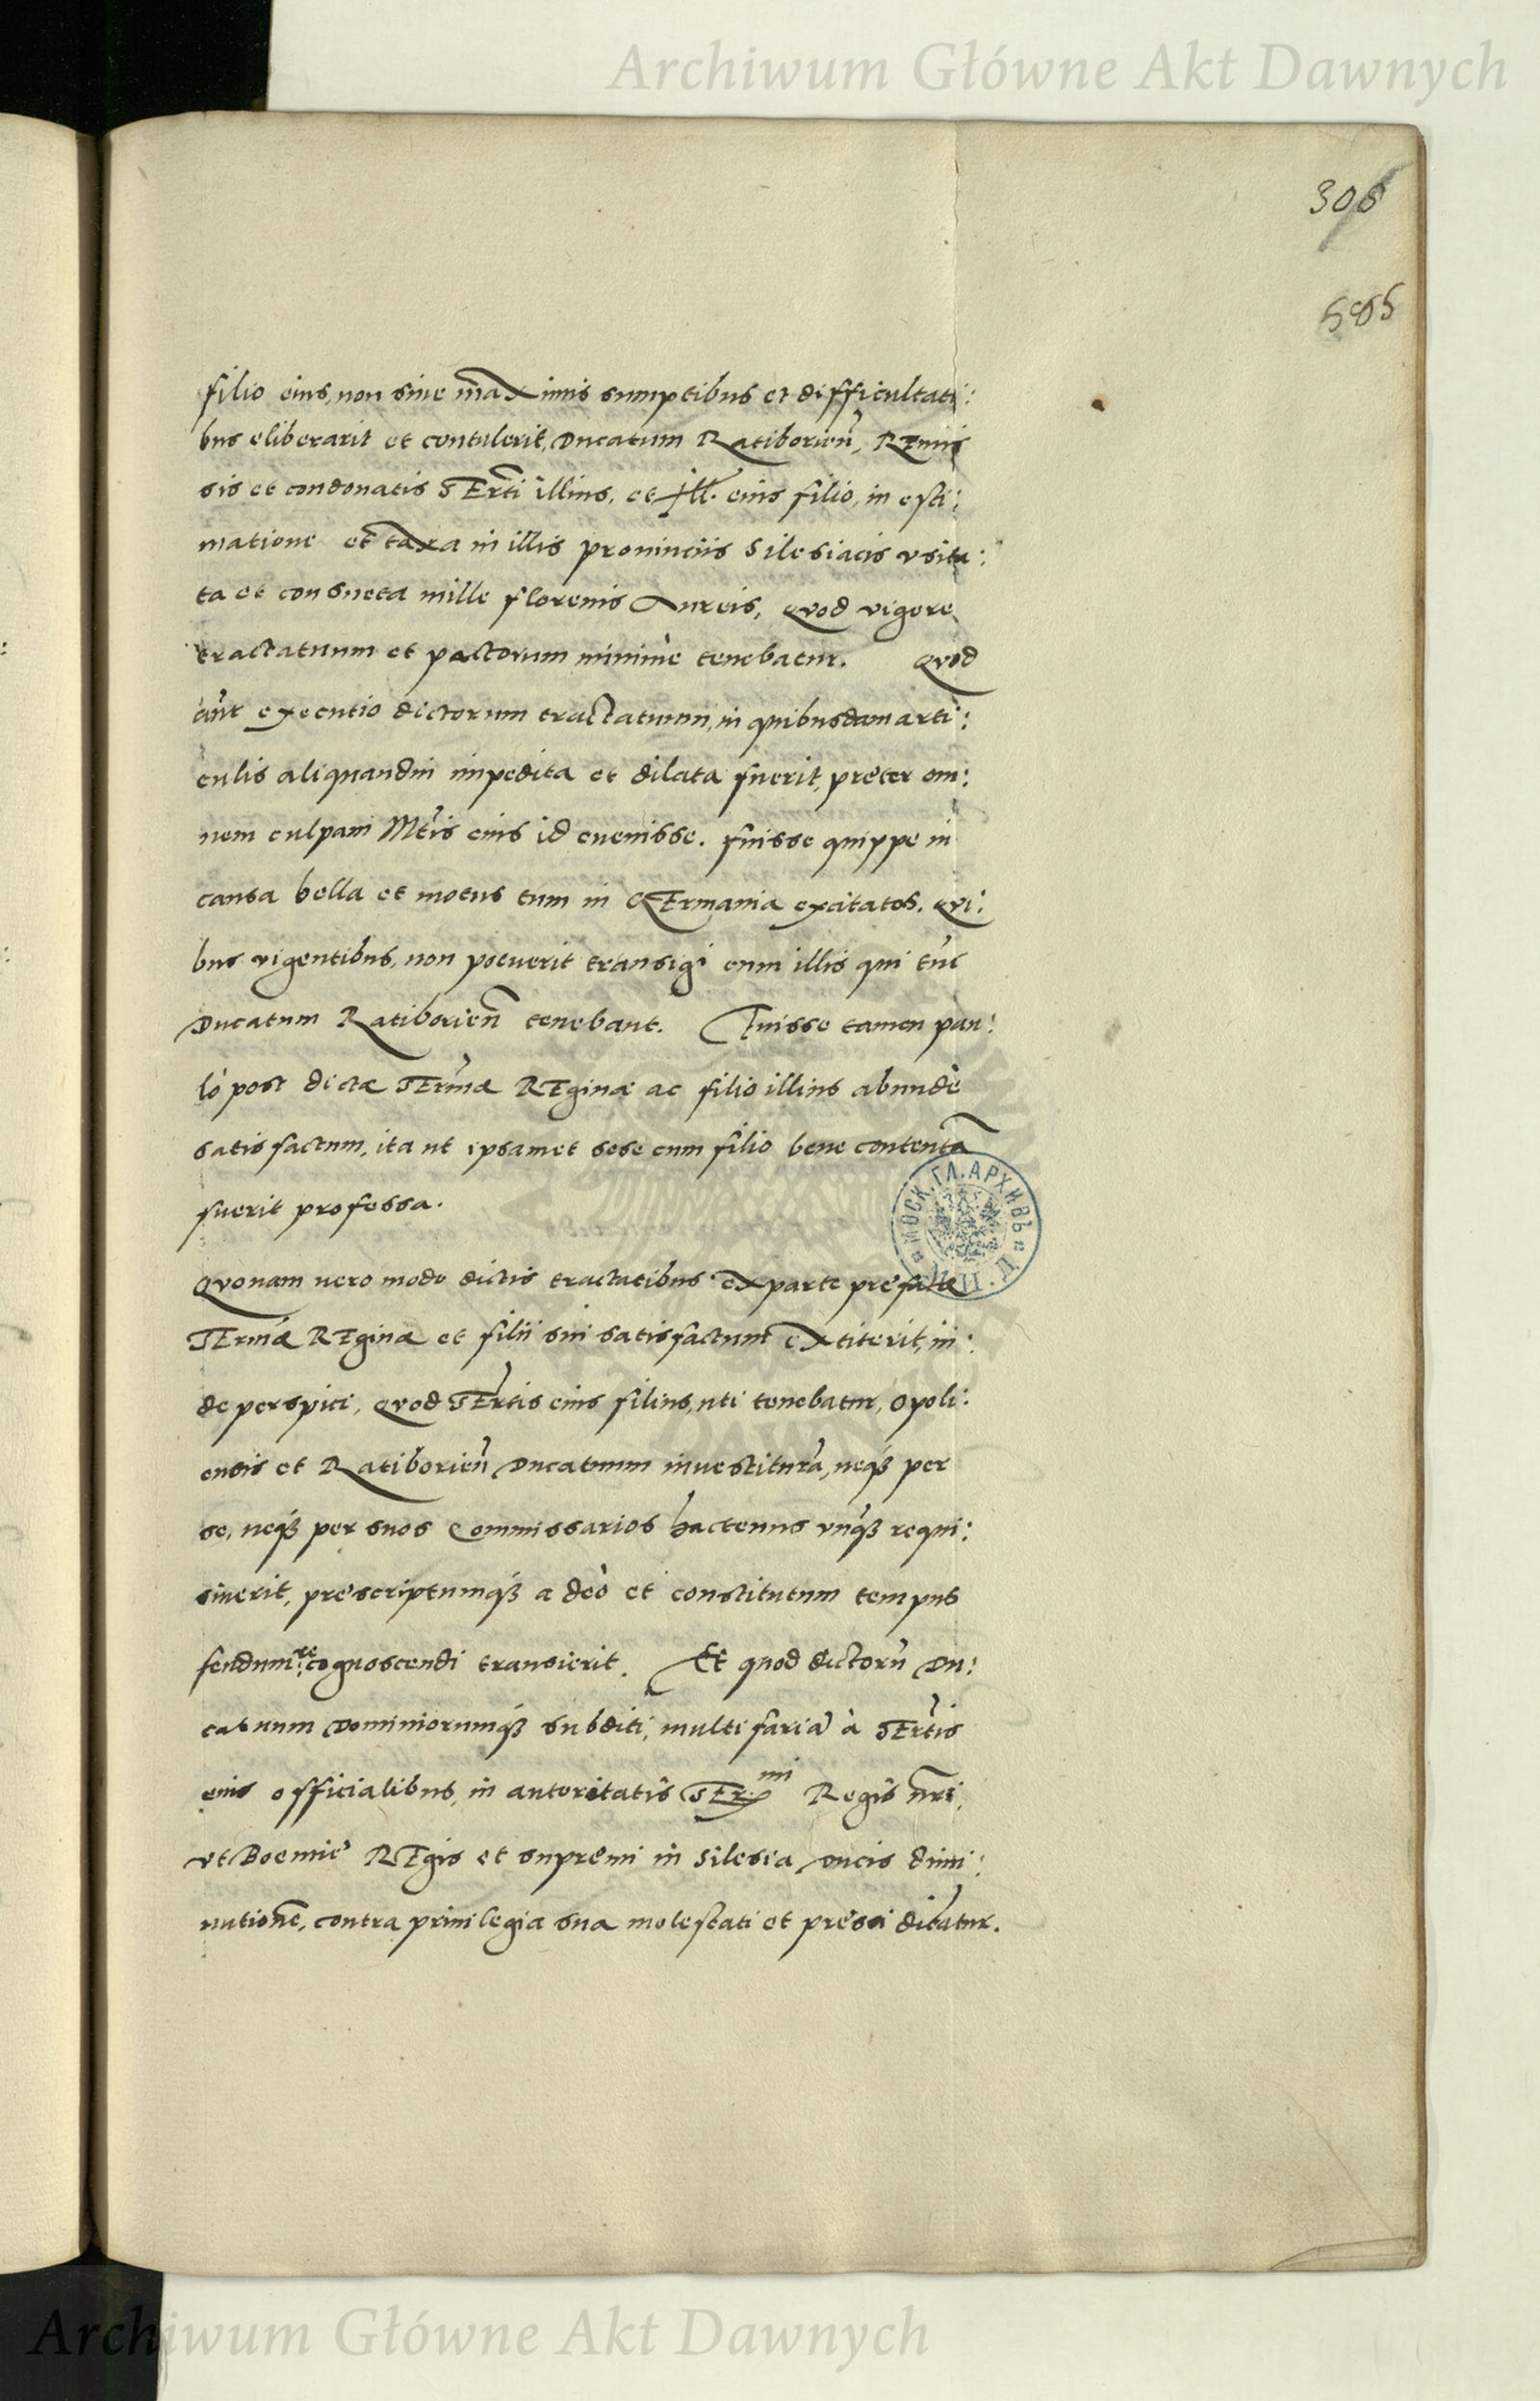 Archiwum Główne Akt Dawnych
306
505
filio eius, non sine maximis sumptibus et difficultati:
bus eliberarit et contulerit, Ducatum Ratiborien̄, Remis
sis et condonatis SErti illius, et Ill. eius filio, in esti:
matione et taxa in illis prouinciis Silesiacis vsita:
ta et consueta mille florenis Aureis, Quod vigore
tractatuum et pactorum minimè tenebatur. Quod
aūt executio dictorum tractatuum, in quibusdam arti:
culis aliquandiu impedita et dilata fuerit, preter om:
nem culpam Mtis eius id euenisse. fuisse quippe in
causa bella et motus tum in GErmania excitatos. Qui:
bus vigentibus, non potuerit transigi cum illis qui tūc
Ducatum Ratiborien̄ tenebant. Fuisse tamen pau:
lò post dictæ SErmæ REginæ ac filio illius abundè
satisfactum, ita ut ipsamet sese cum filio bene contentā
fuerit professa.
Quonam uero modo dictis tractatibus ex parte prefatæ
SErmæ REginæ et filii sui satisfactum extiterit, in:
de perspici, Quod SErtis eius filius, uti tenebatur, Opoli:
ensis et Ratiborien̄ Ducatuum inuestiturā, neqȝ per
se, neqȝ per suos Commissarios hactenus vnqȝ requi:
siuerit, prescriptumqȝ adeò et constitutum tempus
feudum recognoscendi transierit. Et quod dictorū Du:
catuum Dominiorumqȝ subditi, multifariā à SErtis
eius officialibus, in autoritatis SEr.mi Regis nr̄i,
vt Boemiȩ REgis et supremi in Silesia Ducis dimi:
nutionē, contra priuilegia sua molestati et pressi dicātur.
МОСК. ГЛ. АРХИВЪ
Archiwum Główne Akt Dawnych